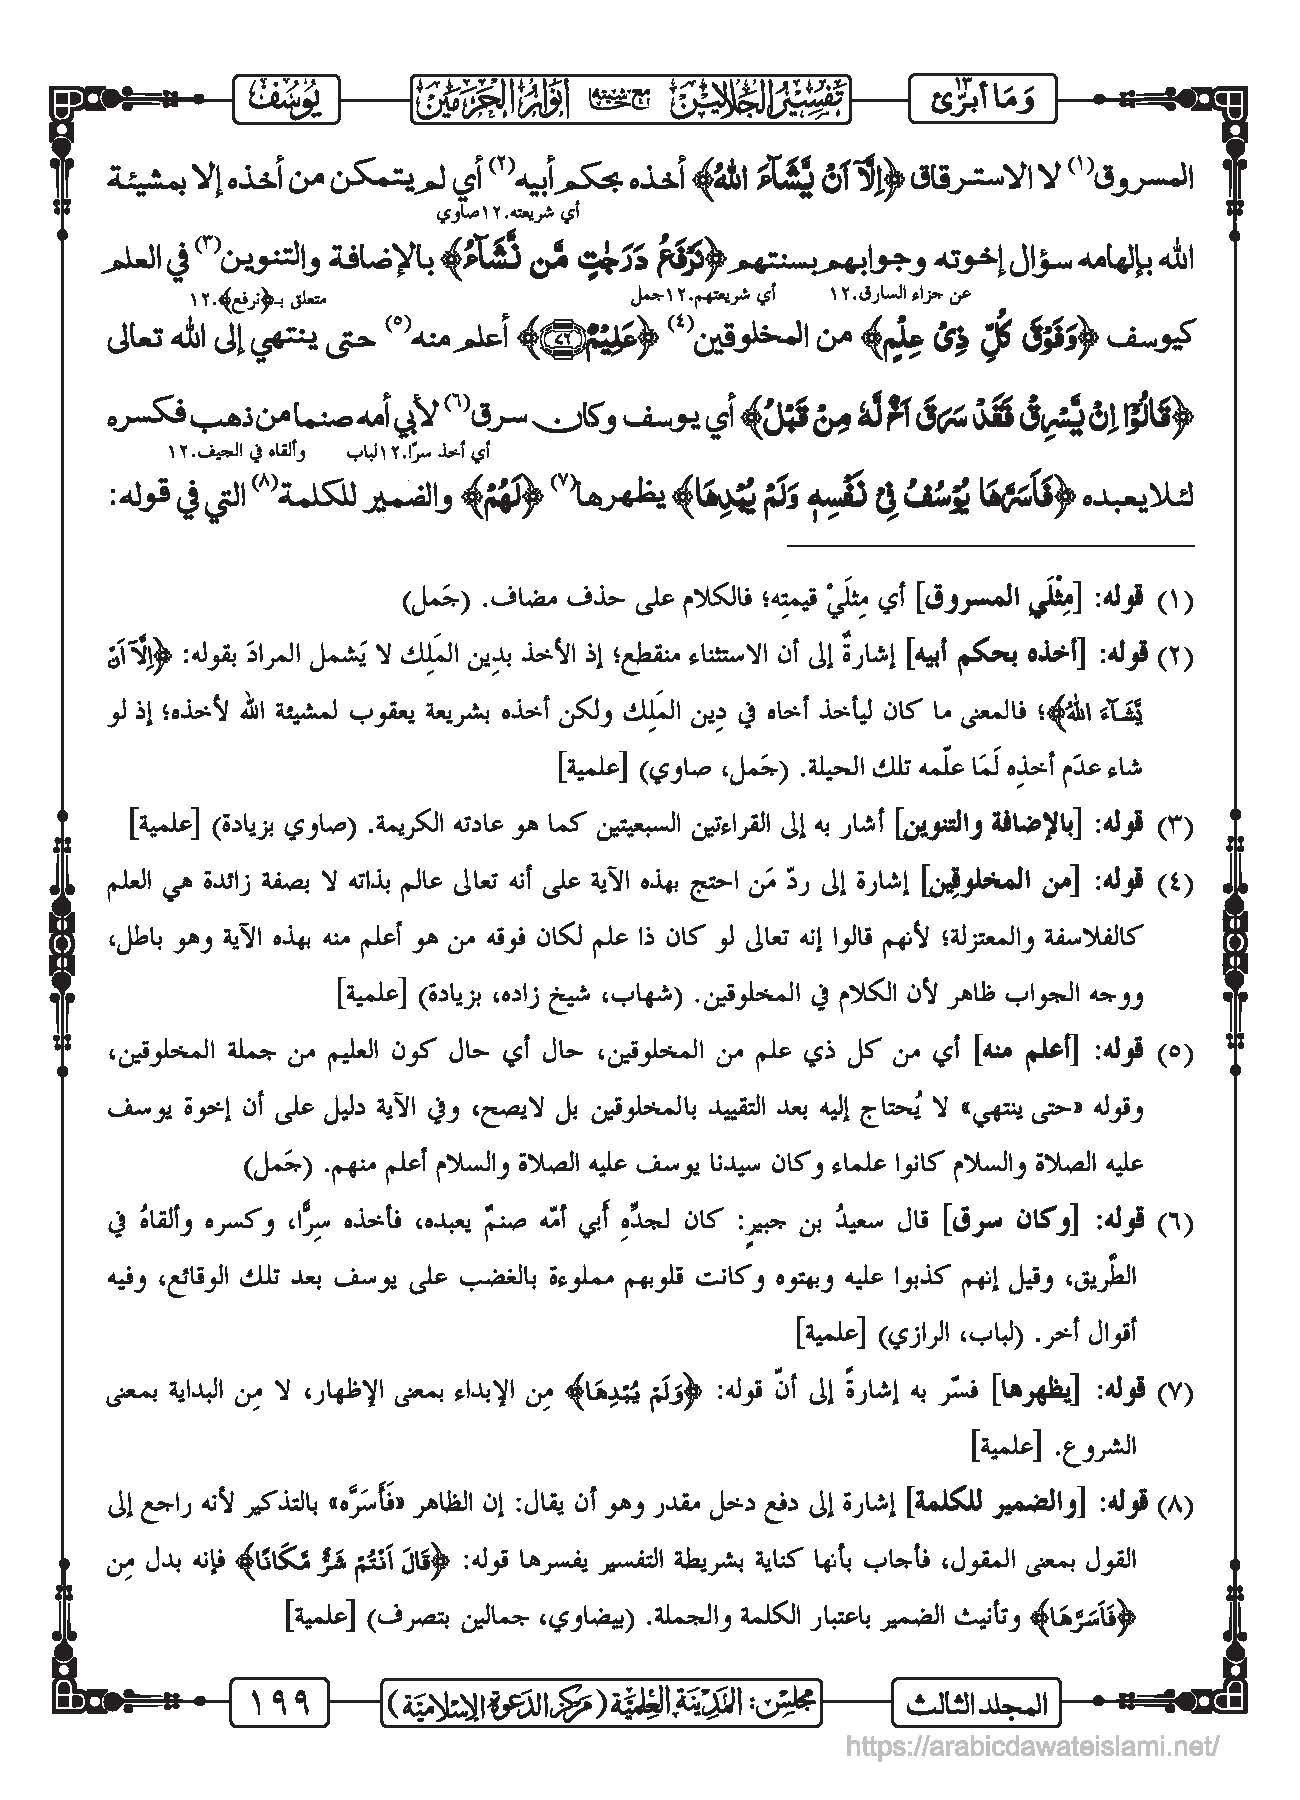 وَمَا أبرّئ ١٣
تفسير الجلالين مع حاشيته أنوار الحرمين
يُوسُف
المسروق(١) لا الاسترقاق ﴿اِلَّاۤ اَنْ یَّشَآءَ اللهُ﴾ أخذه بحكم أبيه(٢) أي لم يتمكن من أخذه إلا بمشيئة
أي شريعته.١٢صاوي
الله بإلهامه سؤال إخوته وجوابهم بسنتهم ﴿نَرْفَعُ دَرَجٰتٍ مَّن نَّشَآءُ﴾ بالإضافة والتنوين(٣) في العلم
عن جزاء السارق.١٢ أي شريعتهم.١٢جمل متعلق بـ﴿نرفع﴾.١٢
كيوسف ﴿وَفَوْقَ كُلِّ ذِیْ عِلْمٍ﴾ من المخلوقين(٤) ﴿عَلِیْمٌ ٧٦﴾ أعلم منه(٥) حتى ينتهي إلى الله تعالى
﴿قَالُوْۤا اِنْ یَّسْرِقْ فَقَدْ سَرَقَ اَخٌ لَّهٗ مِنْ قَبْلُ﴾ أي يوسف وكان سرق(٦) لأبي أمه صنما من ذهب فكسره
أي أخذ سرّا.١٢لباب وألقاه في الجيف.١٢
لئلا يعبده ﴿فَاَسَرَّهَا یُوْسُفُ فِیْ نَفْسِهٖ وَلَمْ یُبْدِهَا﴾ يظهرها(٧) ﴿لَهُمْ﴾ والضمير للكلمة(٨) التي في قوله:
(١) قوله: [مِثْلَيِ المسروق] أي مِثلَيْ قيمتِه؛ فالكلام على حذف مضاف. (جَمل)
(٢) قوله: [أخذه بحكم أبيه] إشارةٌ إلى أن الاستثناء منقطع؛ إذ الأخذ بدِين المَلِك لا يَشمل المرادَ بقوله: ﴿اِلَّاۤ اَنْ
یَّشَآءَ اللهُ﴾؛ فالمعنى ما كان ليأخذ أخاه في دِين المَلِك ولكن أخذه بشريعة يعقوب لمشيئة الله لأخذه؛ إذ لو
شاء عدَم أخذِه لَمَا علّمه تلك الحيلة. (جَمل، صاوي) [علمية]
(٣) قوله: [بالإضافة والتنوين] أشار به إلى القراءتين السبعيتين كما هو عادته الكريمة. (صاوي بزيادة) [علمية]
(٤) قوله: [من المخلوقين] إشارة إلى ردّ مَن احتج بهذه الآية على أنه تعالى عالم بذاته لا بصفة زائدة هي العلم
كالفلاسفة والمعتزلة؛ لأنهم قالوا إنه تعالى لو كان ذا علم لكان فوقه من هو أعلم منه بهذه الآية وهو باطل،
ووجه الجواب ظاهر لأن الكلام في المخلوقين. (شهاب، شيخ زاده، بزيادة) [علمية]
(٥) قوله: [أعلم منه] أي من كل ذي علم من المخلوقين، حال أي حال كون العليم من جملة المخلوقين،
وقوله «حتى ينتهي» لا يُحتاج إليه بعد التقييد بالمخلوقين بل لايصح، وفي الآية دليل على أن إخوة يوسف
عليه الصلاة والسلام كانوا علماء وكان سيدنا يوسف عليه الصلاة والسلام أعلم منهم. (جَمل)
(٦) قوله: [وكان سوق] قال سعيدُ بن جبيرٍ: كان لجدِّهِ أَبي أمّه صنمٌ يعبده، فأخذه سِرًّا، وكسره وألقاهُ في
الطَّريق، وقيل إنهم كذبوا عليه وبهتوه وكانت قلوبهم مملوءة بالغضب على يوسف بعد تلك الوقائع، وفيه
أقوال أخر. (لباب، الرازي) [علمية]
(٧) قوله: [يظهرها] فسّر به إشارةً إلى أنّ قوله: ﴿وَلَمْ یُبْدِهَا﴾ مِن الإبداء بمعنى الإظهار، لا مِن البداية بمعنى
الشروع. [علمية]
(٨) قوله: [والضمير للكلمة] إشارة إلى دفع دخل مقدر وهو أن يقال: إن الظاهر «فَأَسَرَّه» بالتذكير لأنه راجع إلى
القول بمعنى المقول، فأجاب بأنها كناية بشريطة التفسير يفسرها قوله: ﴿قَالَ اَنْتُمْ شَرٌّ مَّكَانًا﴾ فإنه بدل مِن
﴿فَاَسَرَّهَا﴾ وتأنيث الضمير باعتبار الكلمة والجملة. (بيضاوي، جمالين بتصرف) [علمية]
المجلد الثالث
مجلس: المدينة العلمية (مركز الدعوة الإسلامية)
١٩٩
https://arabicdawateislami.net/